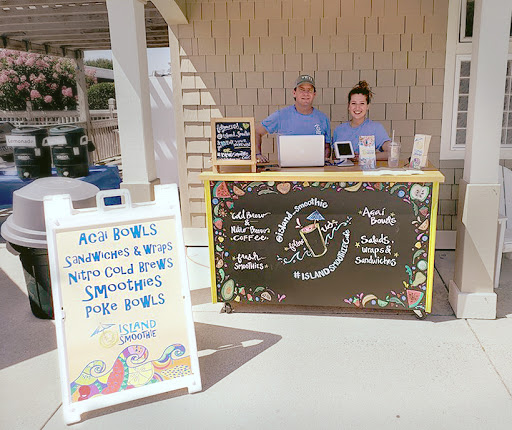 Acai Bowls
Sandwiches & Wraps
Nitro Cold Brews
Smoothies
Poke Bowls
Island
Smoothie
@island_smoothie
Cold Brew &
Nitro Brews
Coffee
fresh
Smoothies
Acai
Bowls
Salads,
wraps &
Sandwiches
#islandsmoothiecafe